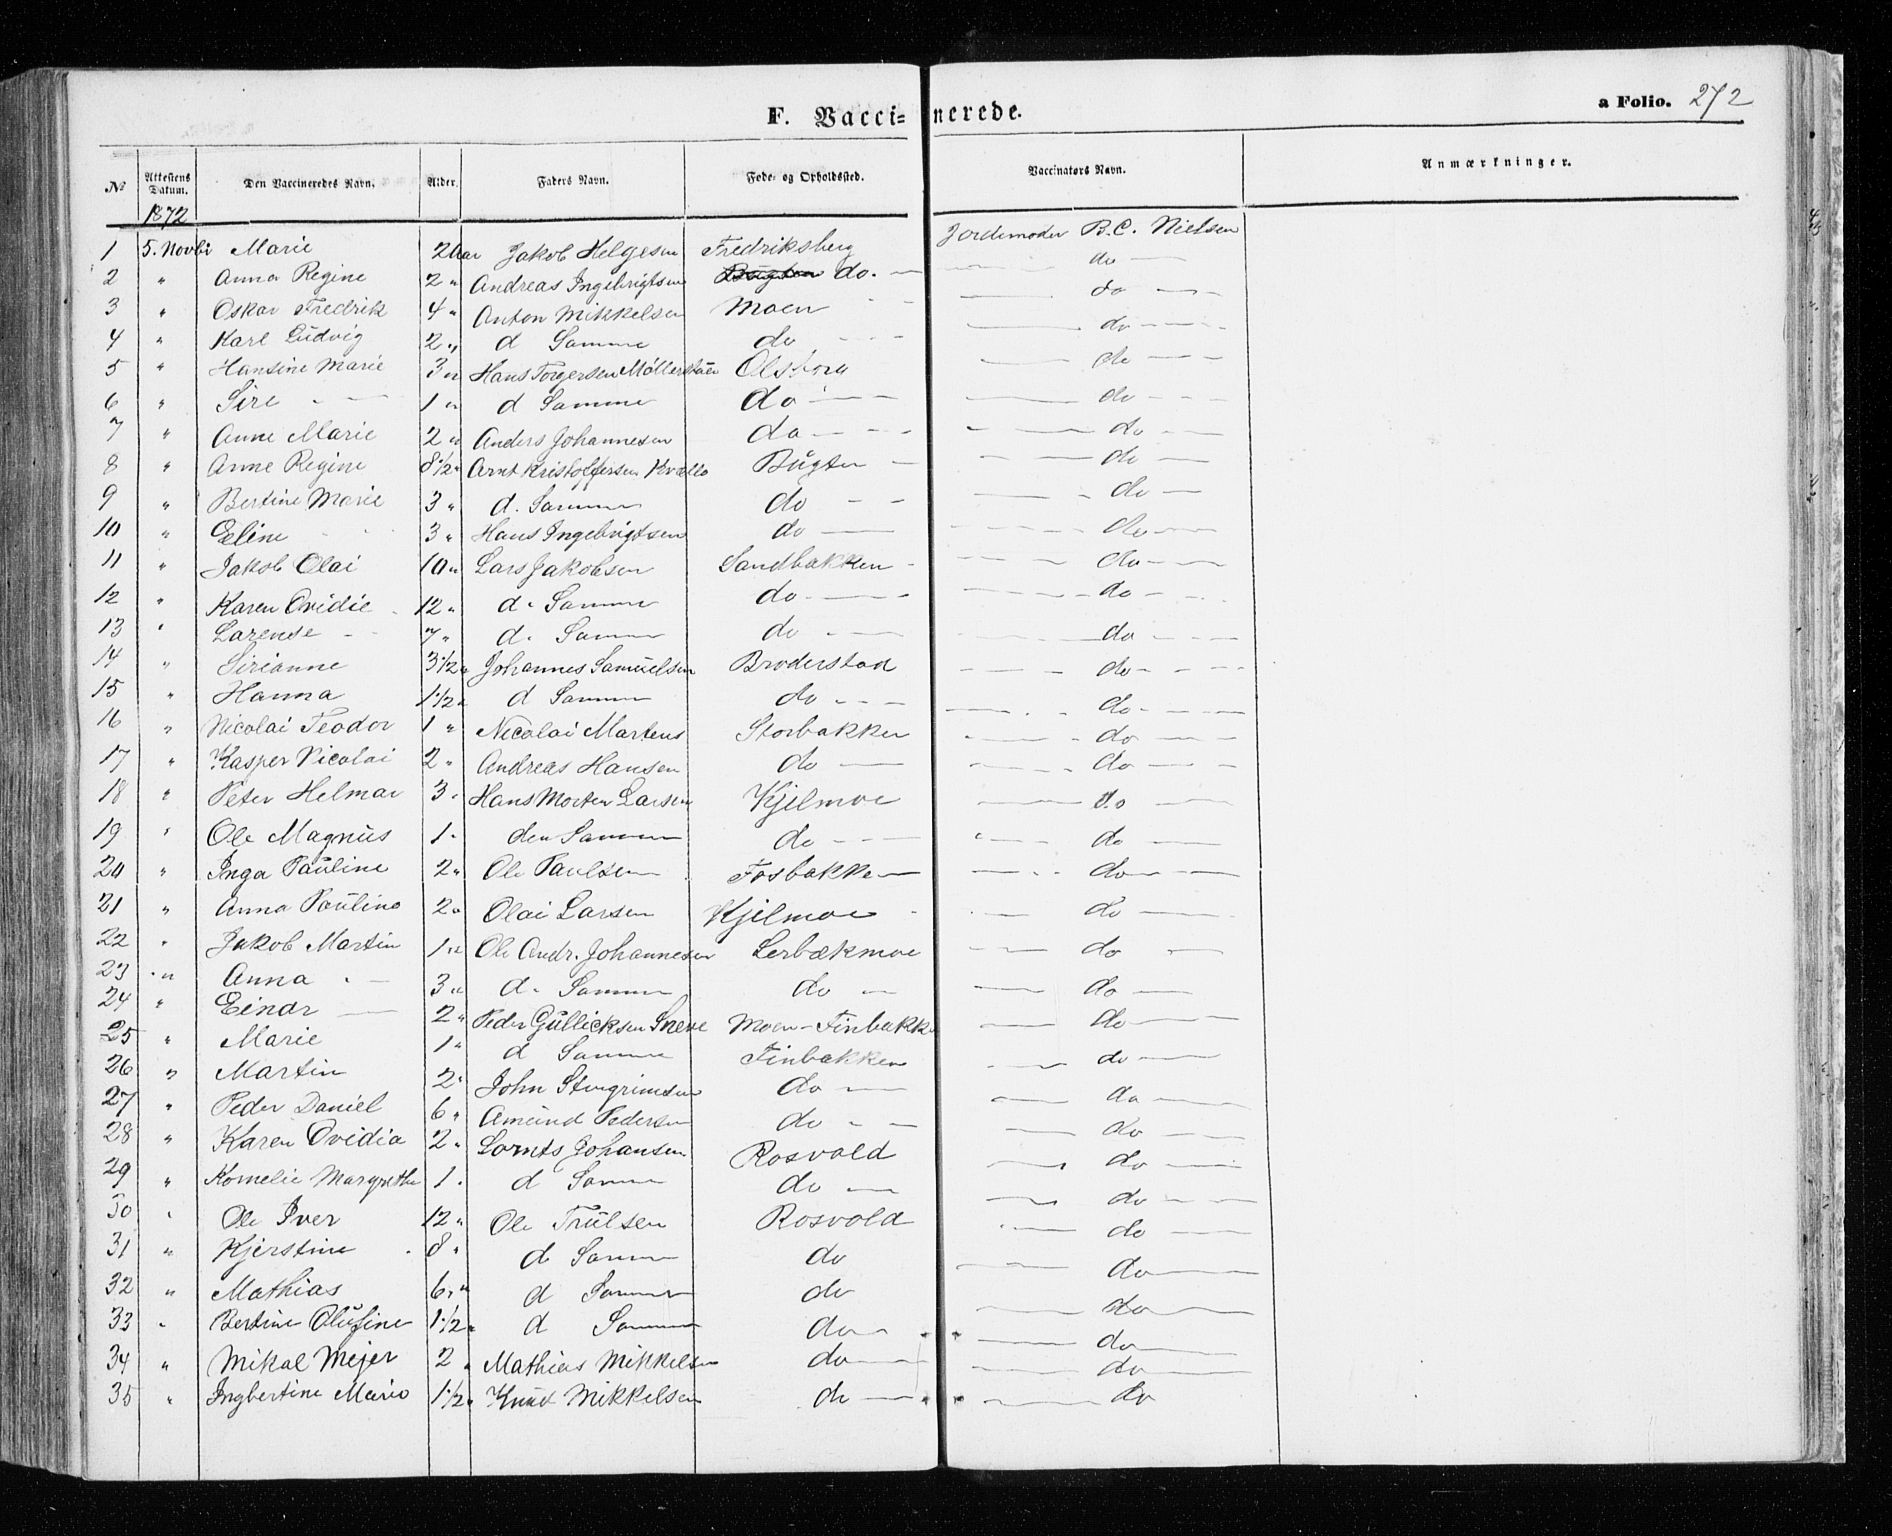 F. Vaccinerede.
a Folio. 272
№ Attestens Datum. Den Vaccineredes Navn. Alder. Faders Navn. Føde- og Opholdssted. Vaccinators Navn. Anmærkninger.
1872
1 5. Novbr Marie 2 aar Jakob Helgesen Fredriksberg Jordemoder B.C. Nielsen
2 " Anna Regine 2 " Andreas Ingebrigtsen Bugten do. do
3 " Oskar Fredrik 4 " Anton Mikkelsen Moen do
4 " Karl Ludvig 2 " d Samme do do
5 " Hansine Marie 3 " Hans Torgersen Møllerstuen Olsborg do
6 " Sire 1 " d Samme do do
7 " Anne Marie 2 " Anders Johannesen do do
8 " Anne Regine 8 1/2 " Arnt Kristoffersen Kvello Bugten do
9 " Bertine Marie 3 " d. Samme do do
10 " Eline 3 " Hans Ingebrigtsen do do
11 " Jakob Olai 10 " Lars Jakobsen Sandbakken do
12 " Karen Ovidie 12 " d. Samme do do
13 " Larense 7 " d. Samme do do
14 " Sirianne 3 1/2 " Johannes Samuelsen Broderstad do
15 " Hanna 1 1/2 " d Samme do do
16 " Nicolai Teodor 1 " Nicolai Martens Storbakken do
17 " Kasper Nicolai 2 " Andreas Hansen do do
18 " Peter Helmar 3 " Hans Morten Larsen Kjelmoe do
19 " Ole Magnus 1 " den Samme do do
20 " Inga Pauline 2 " Ole Paulsen Fosbakken do
21 " Anna Pauline 2 " Olai Larsen Kjelmoe do
22 " Jakob Martin 1 " Ole Andr. Johannesen Lerbækmoe do
23 " Anna 3 " d. Samme do do
24 " Einar 2 " Peder Gullicksen Sneve Moen-Finbakk do
25 " Marie 1 " d Samme Finbakken do
26 " Martin 2 " John Stengrimsen do do
27 " Peder Daniel 6 " Amund Pedersen do do
28 " Karen Ovidia 2 " Lornts Johansen Rosvold do
29 " Kornelie Margrethe 1 " d Samme do do
30 " Ole Iver 12 " Ole Trulsen Rosvold do
31 " Kjerstine 8 " d Samme do do
32 " Mathias 6 " d Samme do do
33 " Bertine Olufine 1 1/2 " d Samme do do
34 " Mikal Mejer 2 " Mathias Mikkelsen do do
35 " Ingbertine Marie 1 1/2 " Knud Mikkelsen do do